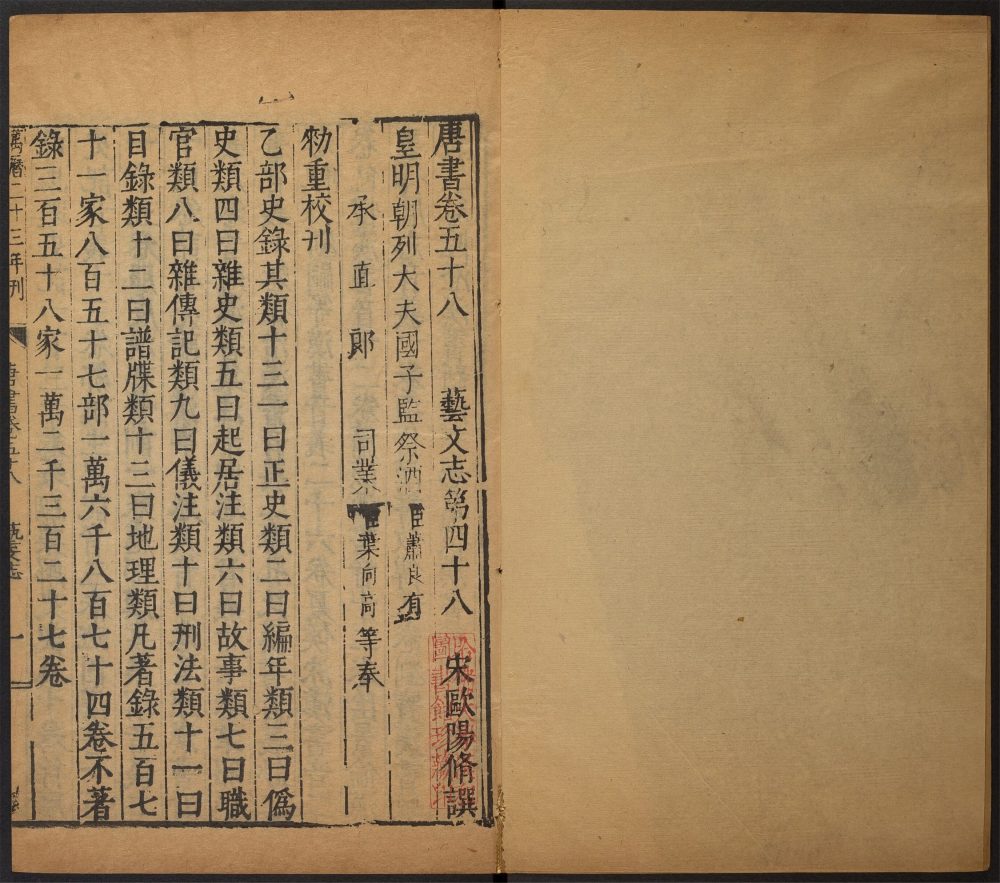 唐書卷五十八 藝文志第四十八 宋歐陽脩譔
皇明朝列大夫國子監祭酒臣蕭良有
承直郞司業臣葉向高等奉
勑重校刊
乙部史錄其類十三一曰正史類二曰編年類三曰僞
史類四曰雜史類五曰起居注類六曰故事類七曰職
官類八曰雜傳記類九曰儀注類十曰刑法類十一曰
目錄類十二曰譜牒類十三曰地理類凡著錄五百七
十一家八百五十七部一萬六千八百七十四卷不著
錄三百五十八家一萬二千三百二十七卷
萬曆二十三年刊 唐書卷五十八 藝文志 一